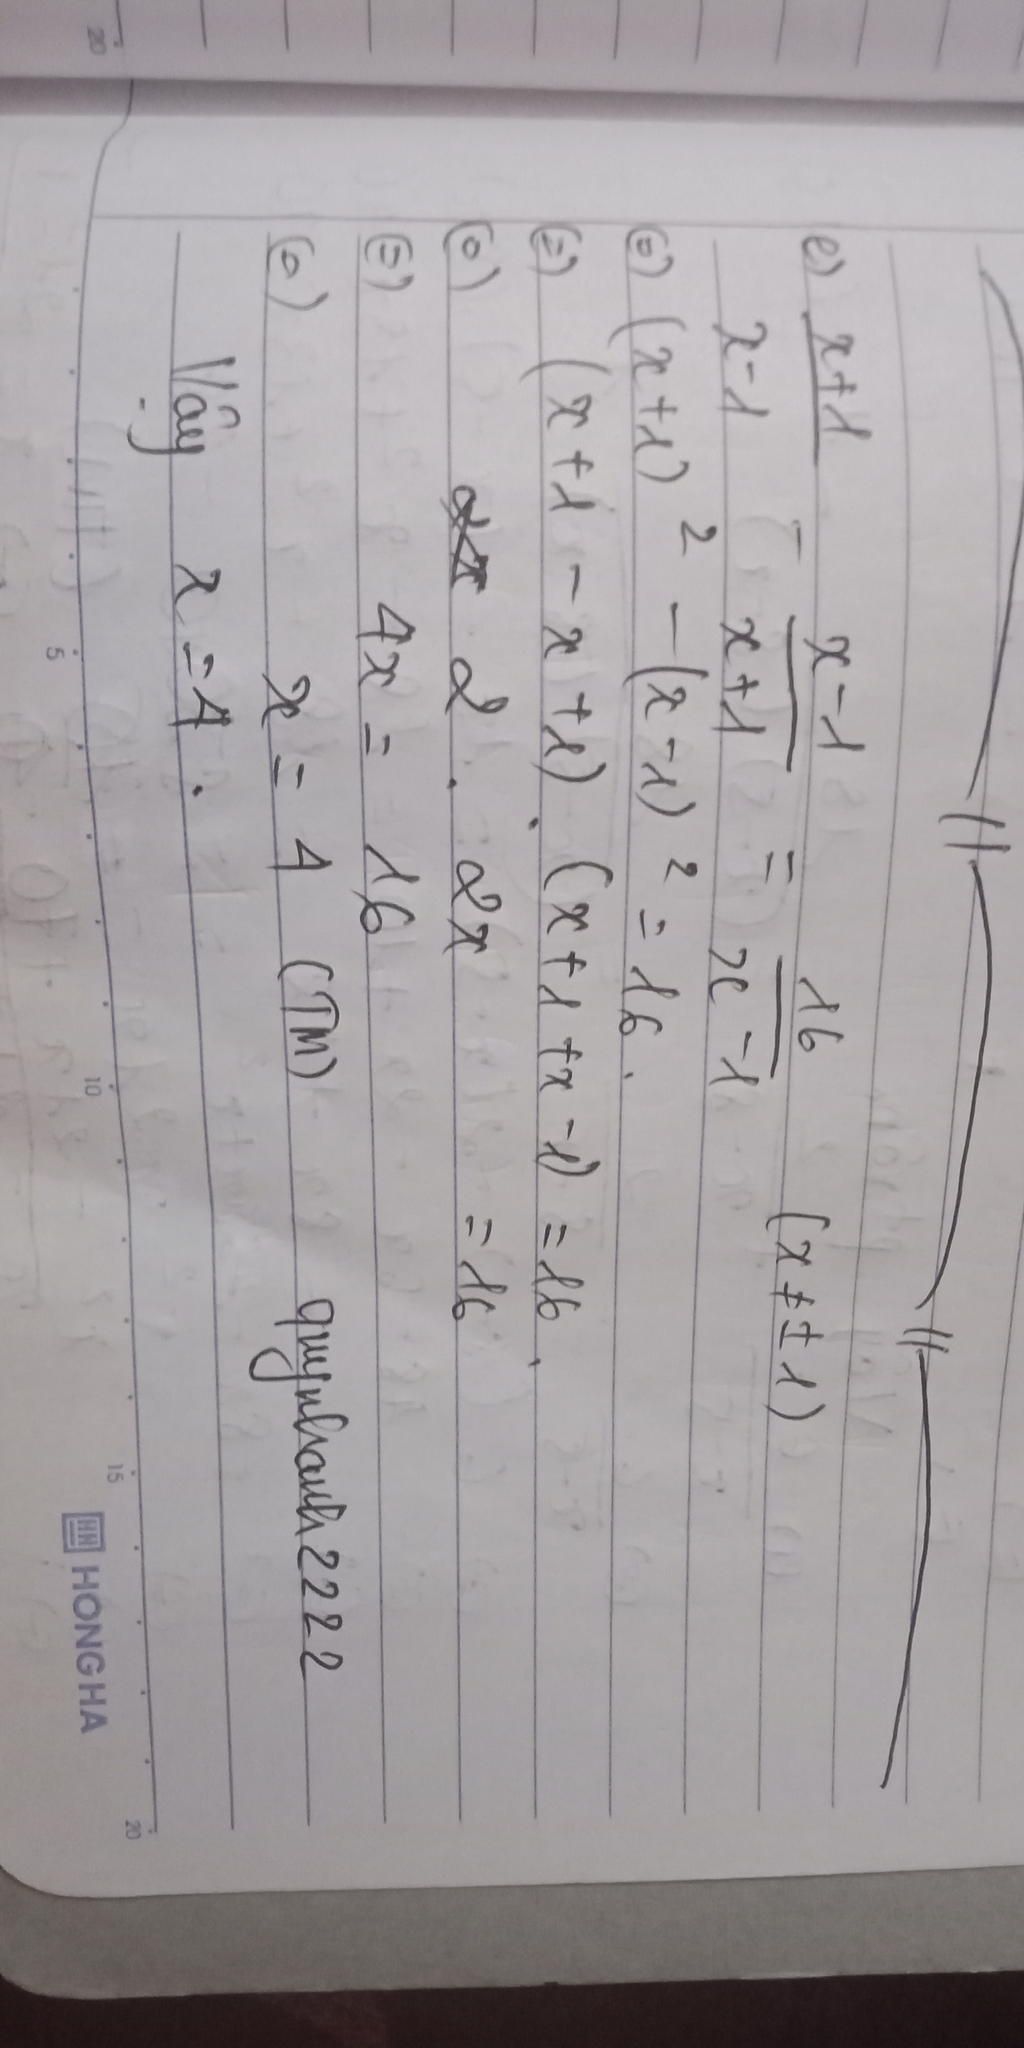 e) x+1/x-1 - x-1/x+1 = 16/x-1 (x ≠ ±1)
(=) (x+1)² - (x-1)² = 16.
(=) (x+1-x+1). (x+1+x-1) = 16.
(=) 2 . 2x = 16
(=) 4x = 16
(=) x = 4 (TM)
quynhanh2222
Vậy x = 4.
20
5
10
15
20
HONG HA